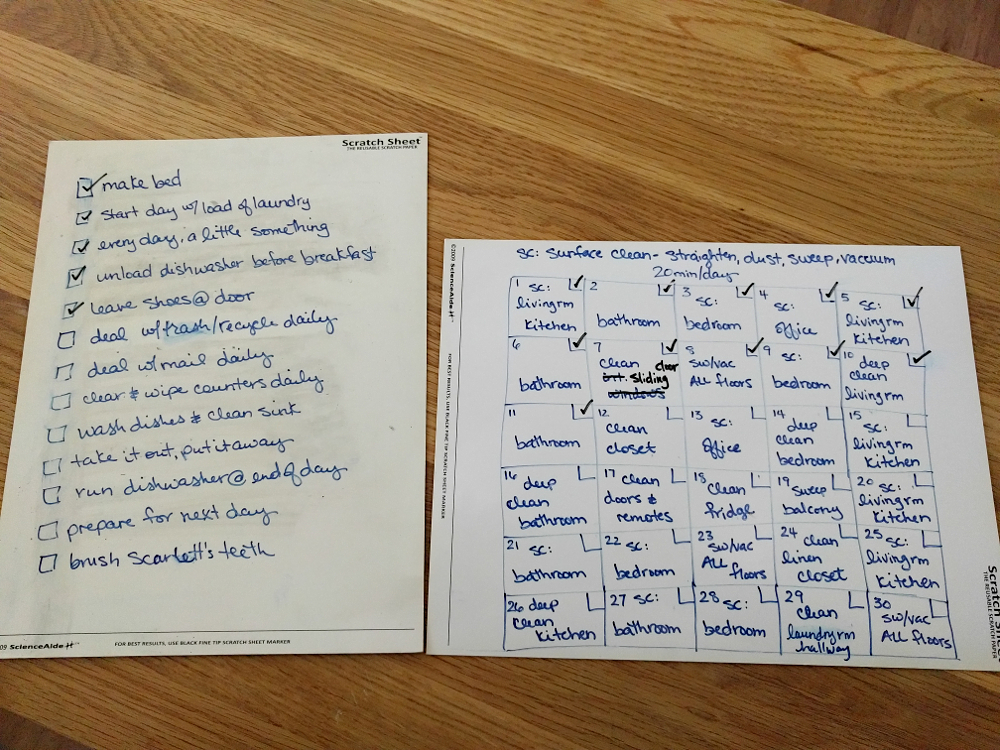 Scratch Sheet
THE REUSABLE SCRATCH PAPER
make bed
start day w/ load of laundry
every day, a little something
unload dishwasher before breakfast
leave shoes @ door
deal w/ trash/recycle daily
deal w/ mail daily
clear & wipe counters daily
wash dishes & clean sink
take it out, put it away
run dishwasher @ end of day
prepare for next day
brush Scarlett's teeth
09 ScienceAide
FOR BEST RESULTS, USE BLACK FINE TIP SCRATCH SHEET MARKER
©2009 ScienceAide
FOR BEST RESULTS, USE BLACK FINE TIP SCRATCH SHEET MARKER
SC: Surface clean- straighten, dust, sweep, vacuum
20 min/day
1 SC:
livingrm
kitchen
2
bathroom
3
SC:
bedroom
4
SC:
office
5
SC:
livingrm
kitchen
6
bathroom
7
clean door
sliding
windows
8
sw/vac
All floors
9 SC:
bedroom
10 deep
clean
livingrm
11
bathroom
12
clean
closet
13
SC:
office
14
deep
clean
bedroom
15
SC:
livingrm
kitchen
16 deep
clean
bathroom
17 clean
doors &
remotes
18 clean
fridge
19 sweep
balcony
20 SC:
livingrm
kitchen
21
SC:
bathroom
22
SC:
bedroom
23
sw/vac
All floors
24 clean
linen
closet
25 SC:
livingrm
kitchen
26 deep
clean
kitchen
27 SC:
bathroom
28 SC:
bedroom
29
clean
laundryrm
hallway
30
sw/vac
All floors
Scratch
THE REUSABLE SCRATCH PAPER